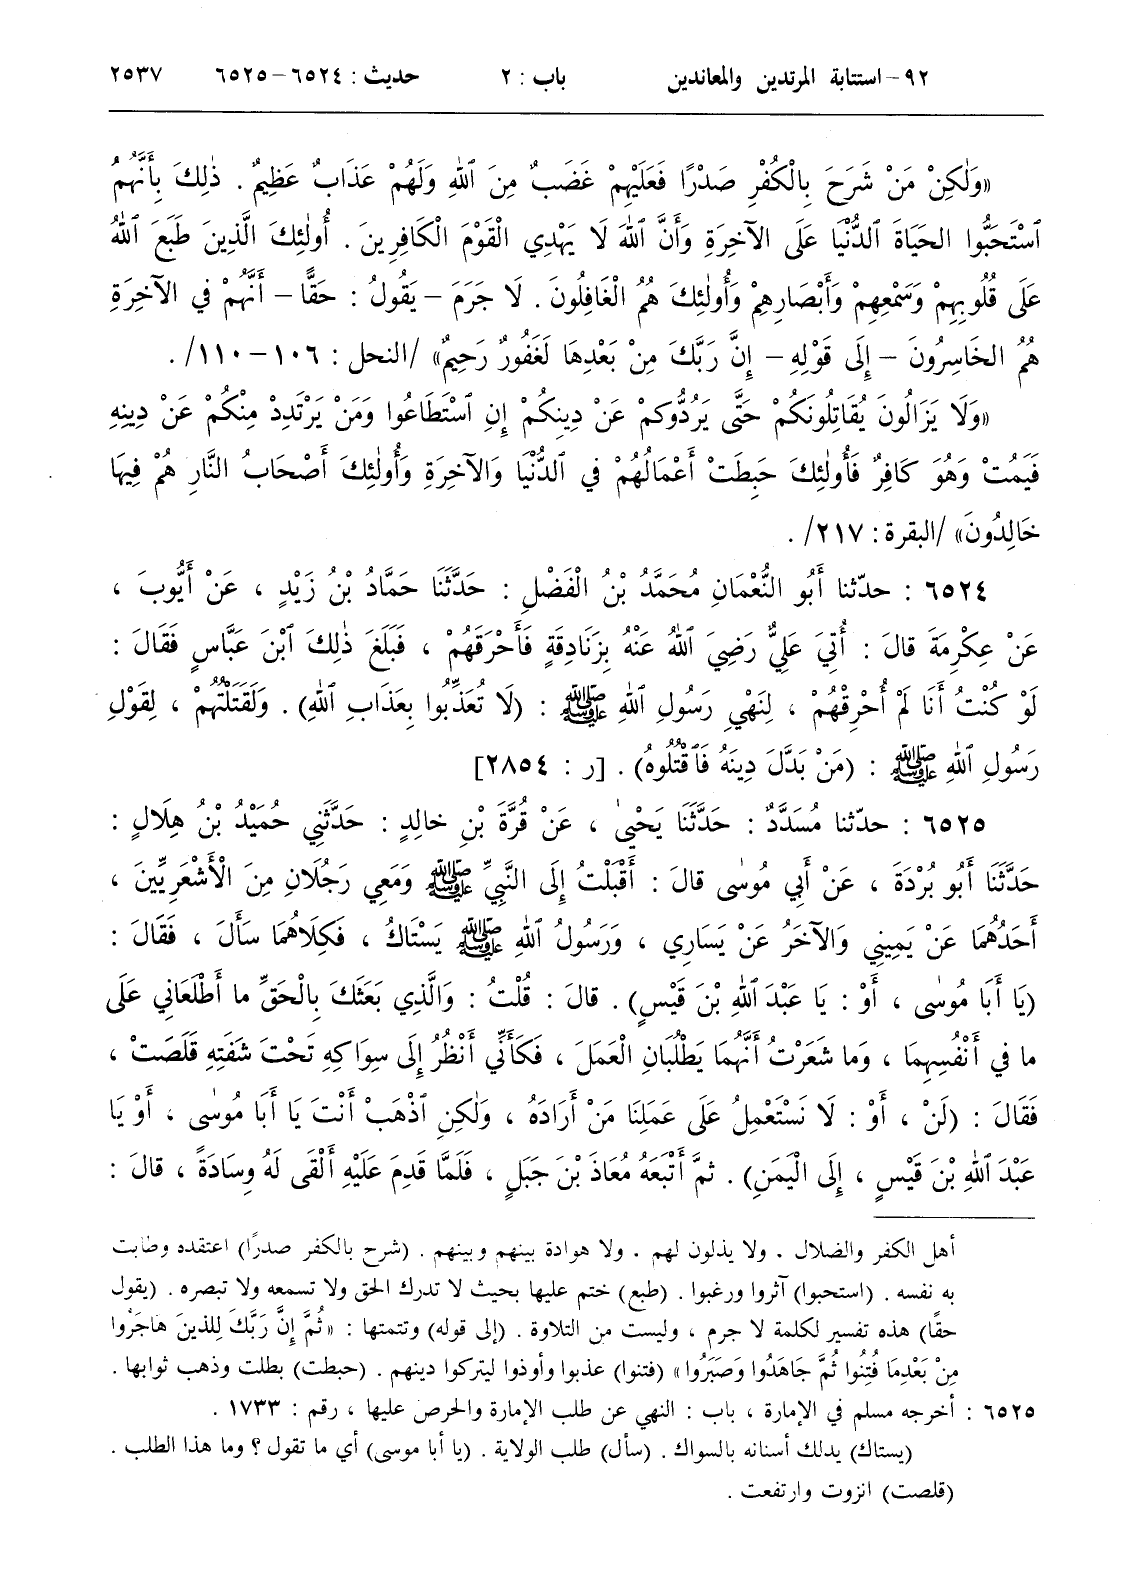 ٩٢- استتابة المرتدين والمعاندين باب : ٢ حديث : ٦٥٢٤-٦٥٢٥ ٢٥٣٧
«وَلٰكِنْ مَنْ شَرَحَ بِالْكُفْرِ صَدْرًا فَعَلَيْهِمْ غَضَبٌ مِنَ ٱللهِ وَلَهُمْ عَذَابٌ عَظِيمٌ . ذٰلِكَ بِأَنَّهُمُ
ٱسْتَحَبُّوا الحَيَاةَ ٱلدُّنْيَا عَلَى الآخِرَةِ وَأَنَّ ٱللهَ لَا يَهْدِي الْقَوْمَ الْكَافِرِينَ . أُولٰئِكَ الَّذِينَ طَبَعَ ٱللهُ
عَلَى قُلُوبِهِمْ وَسَمْعِهِمْ وَأَبْصَارِهِمْ وَأُولٰئِكَ هُمُ الْغَافِلُونَ . لَا جَرَمَ – يَقُولُ : حَقًّا – أَنَّهُمْ في الآخِرَةِ
هُمُ الخَاسِرُونَ – إِلَى قَوْلِهِ – إِنَّ رَبَّكَ مِنْ بَعْدِهَا لَغَفُورٌ رَحِيمٌ» /النحل : ١٠٦-١١٠/ .
«وَلَا يَزَالُونَ يُقَاتِلُونَكُمْ حَتَّى يَرُدُّوكمْ عَنْ دِينِكُمْ إِنِ ٱسْتَطَاعُوا وَمَنْ يَرْتَدِدْ مِنْكُمْ عَنْ دِينِهِ
فَيَمُتْ وَهُوَ كَافِرٌ فَأُولٰئِكَ حَبِطَتْ أَعْمَالُهُمْ في ٱلدُّنْيَا وَالآخِرَةِ وَأُولٰئِكَ أَصْحَابُ النَّارِ هُمْ فِيهَا
خَالِدُونَ» /البقرة : ٢١٧/ .
٦٥٢٤ : حدّثنا أَبُو النُّعْمَانِ مُحَمَّدُ بْنُ الْفَضْلِ : حَدَّثَنَا حَمَّادُ بْنُ زَيْدٍ ، عَنْ أَيُّوبَ ،
عَنْ عِكْرِمَةَ قالَ : أُتِيَ عَلِيٌّ رَضِيَ ٱللهُ عَنْهُ بِزَنَادِقَةٍ فَأَحْرَقَهُمْ ، فَبَلَغَ ذٰلِكَ ٱبْنَ عَبَّاسٍ فَقَالَ :
لَوْ كُنْتُ أَنَا لَمْ أُحْرِقْهُمْ ، لِنَهْيِ رَسُولِ ٱللهِ ﷺ : (لَا تُعَذِّبُوا بِعَذَابِ ٱللهِ) . وَلَقَتَلْتُهُمْ ، لِقَوْلِ
رَسُولِ ٱللهِ ﷺ : (مَنْ بَدَّلَ دِينَهُ فَٱقْتُلُوهُ) . [ر : ٢٨٥٤]
٦٥٢٥ : حدّثنا مُسَدَّدٌ : حَدَّثَنَا يَحْيٰى ، عَنْ قُرَّةَ بْنِ خالِدٍ : حَدَّثَنِي حُمَيْدُ بْنُ هِلَالٍ :
حَدَّثَنَا أَبُو بُرْدَةَ ، عَنْ أَبِي مُوسٰى قالَ : أَقْبَلْتُ إِلَى النَّبِيِّ ﷺ وَمَعِي رَجُلَانِ مِنَ الْأَشْعَرِيِّينَ ،
أَحَدُهُمَا عَنْ يَمِينِي وَالآخَرُ عَنْ يَسَارِي ، وَرَسُولُ ٱللهِ ﷺ يَسْتَاكُ ، فَكِلَاهُمَا سَأَلَ ، فَقَالَ :
(يَا أَبَا مُوسٰى ، أَوْ : يَا عَبْدَ ٱللهِ بْنَ قَيْسٍ) . قالَ : قُلْتُ : وَالَّذِي بَعَثَكَ بِالْحَقِّ ما أَطْلَعَانِي عَلَى
ما في أَنْفُسِهِمَا ، وَما شَعَرْتُ أَنَّهُمَا يَطْلُبَانِ الْعَمَلَ ، فَكَأَنِّي أَنْظُرُ إِلَى سِوَاكِهِ تَحْتَ شَفَتِهِ قَلَصَتْ ،
فَقَالَ : (لَنْ ، أَوْ : لَا نَسْتَعْمِلُ عَلَى عَمَلِنَا مَنْ أَرَادَهُ ، وَلٰكِنِ ٱذْهَبْ أَنْتَ يَا أَبَا مُوسٰى ، أَوْ يَا
عَبْدَ ٱللهِ بْنَ قَيْسٍ ، إِلَى الْيَمَنِ) . ثمَّ أَتْبَعَهُ مُعَاذَ بْنَ جَبَلٍ ، فَلَمَّا قَدِمَ عَلَيْهِ أَلْقَى لَهُ وِسَادَةً ، قالَ :
أهل الكفر والضلال . ولا يذلون لهم . ولا هوادة بينهم وبينهم . (شرح بالكفر صدرًا) اعتقده وطابت
به نفسه . (استحبوا) آثروا ورغبوا . (طبع) ختم عليها بحيث لا تدرك الحق ولا تسمعه ولا تبصره . (يقول
حقًا) هذه تفسير لكلمة لا جرم ، وليست من التلاوة . (إلى قوله) وتتمتها : «ثُمَّ إِنَّ رَبَّكَ لِلذينَ هاجَرُوا
مِنْ بَعْدِمَا فُتِنُوا ثُمَّ جَاهَدُوا وَصَبَرُوا» (فتنوا) عذبوا وأوذوا ليتركوا دينهم . (حبطت) بطلت وذهب ثوابها .
٦٥٢٥ : أخرجه مسلم في الإمارة ، باب : النهي عن طلب الإمارة والحرص عليها ، رقم : ١٧٣٣ .
(يستاك) يدلك أسنانه بالسواك . (سأل) طلب الولاية . (يا أبا موسى) أي ما تقول ؟ وما هذا الطلب .
(قلصت) انزوت وارتفعت .